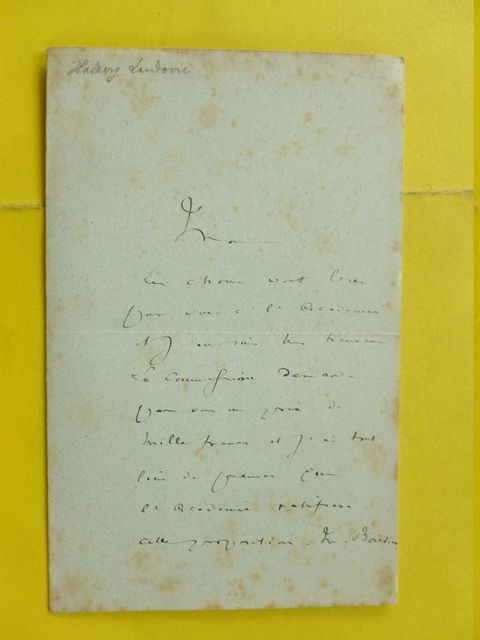 Halévy Ludovic
Monsieur
Les choses vont bien
pour vous à l'Académie
et j'en suis très heureux
La Commission demande
pour vous un prix de
mille francs et j'ai tout
lieu de penser que
l'Académie ratifiera
cette proposition. M.